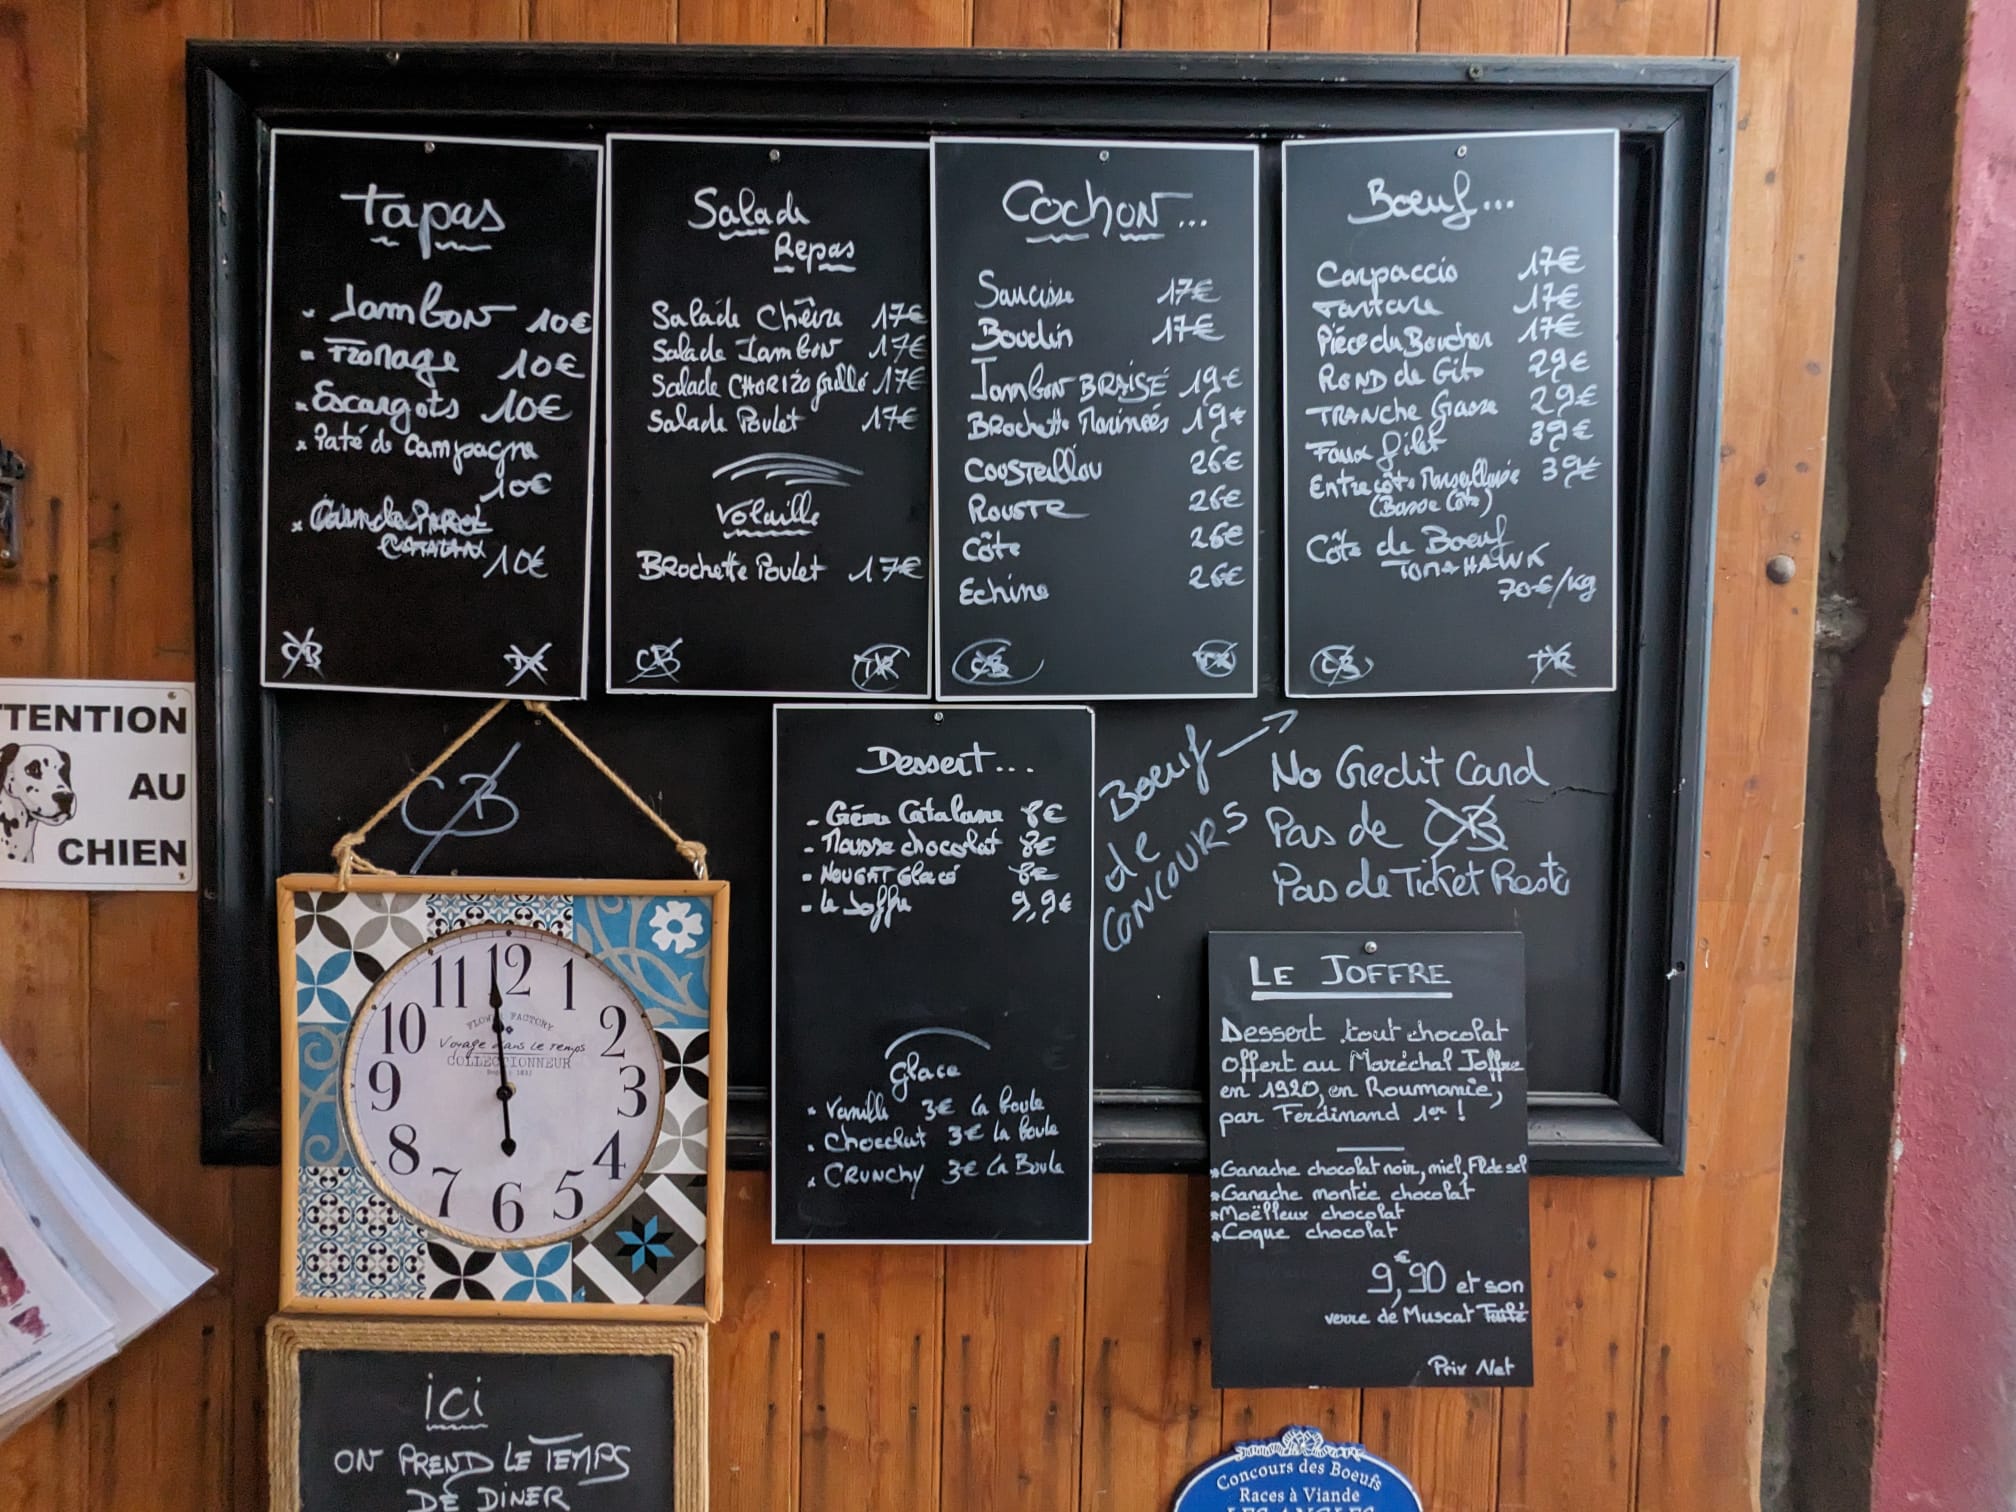 Tapas
- Jambon 10€
- Fromage 10€
- Escargots 10€
- Paté de Campagne
10€
CATALAN 10€
CB
TR
Salade
Repas
Salade Chèvre 17€
Salade Jambon 17€
Salade CHORIZO grillé 17€
Salade Poulet 17€
Volaille
BRochette Poulet 17€
CB
TR
COCHON...
Saucisse 17€
Boudin 17€
Jambon BRAISÉ 19€
BRochette Marinées 19€
COUSTELLOU 26€
ROUSTE 26€
Côte 26€
Echine 26€
CB
TR
Bœuf...
Carpaccio 17€
Tartare 17€
Pièce du Boucher 17€
ROND de Gite 29€
TRANCHE Grasse 29€
Faux filet 39€
Entrecôte Marseillaise 39€
(Basse Côte)
Côte de Bœuf
TOMAHAWK
70€/kg
CB
TR
ATTENTION
AU
CHIEN
CB
Dessert...
- Crème Catalane 8€
- Mousse chocolat 8€
- NOUGAT Glacé 8€
- Le Joffre 9,9€
Glace
• Vanille 3€ la boule
• Chocolat 3€ la boule
• CRUNCHY 3€ la Boule
Boeuf
de
CONCOURS
No Credit Card
Pas de CB
Pas de Ticket Resto
11 12 1
10 2
9 3
8 4
7 6 5
FLOWER FACTORY
Voyage dans le temps
COLLECTIONNEUR
LE JOFFRE
Dessert tout chocolat
offert au Maréchal Joffre
en 1920, en Roumanie,
par Ferdinand 1er !
*Ganache chocolat noir, miel, Fl. de sel
*Ganache montée chocolat
*Moëlleux chocolat
*Coque chocolat
9,90€ et son
verre de Muscat
Prix Net
ici
ON PREND LE TEMPS
DE DINER
Concours des Boeufs
Races à Viande
LES ANGLES